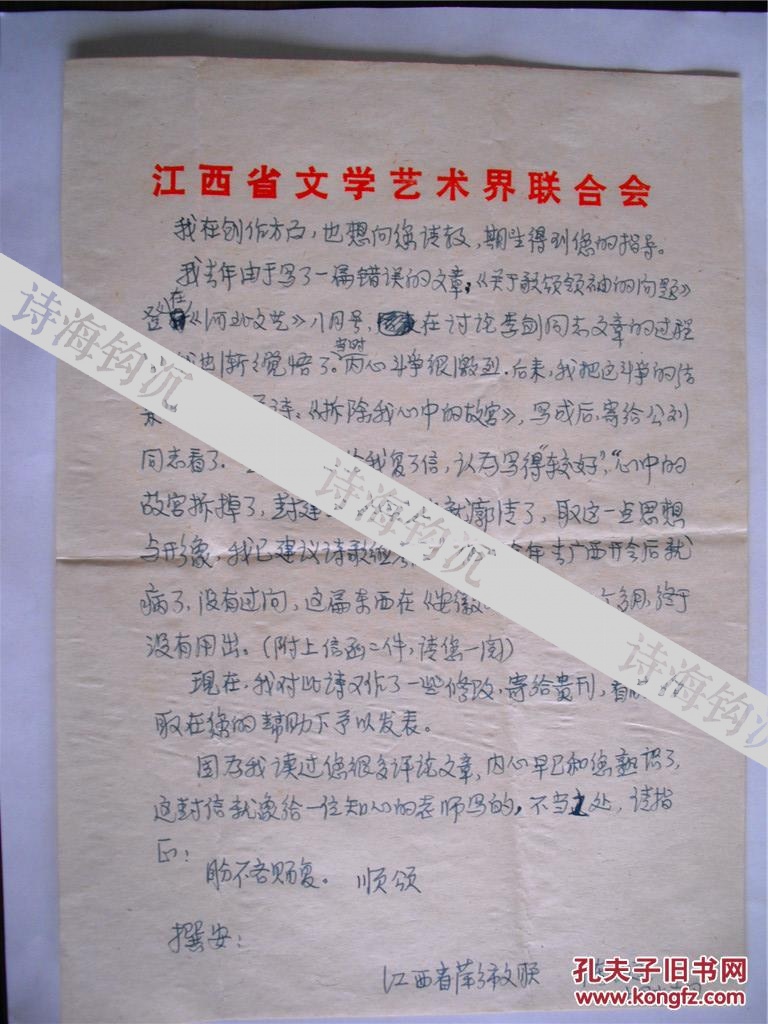 江西省文学艺术界联合会
我在创作方面，也想向您请教，期望得到您的指导。
我去年由于写了一篇错误的文章，《关于歌颂领袖的问题》
登在《河北文艺》八月号，在讨论李剑同志文章的过程
我也渐渐觉悟了。当时内心斗争很激烈。后来，我把这斗争的结
果 诗：《拆除我心中的故宫》，写成后，寄给公刘
同志看了。 给我复了信，认为写得“较好”，“心中的
故宫拆掉了，封建 就廓清了，取这一点思想
与形象，我已建议诗歌组 年去广西开会后就
病了，没有过问，这篇东西在《安徽 个多月，终于
没有用出。（附上信函二件，请您一阅）
现在，我对此诗又作了一些修改，寄给贵刊，看能
取在您的帮助下予以发表。
因为我读过您很多评论文章，内心早已和您熟识了，
这封信就象给一位知心的老师写的，不当之处，请指
正！
盼不吝赐复。 顺颂
撰安！
江西省萍乡市文联
诗海钩沉
诗海钩沉
诗海钩沉
孔夫子旧书网
www.kongfz.com